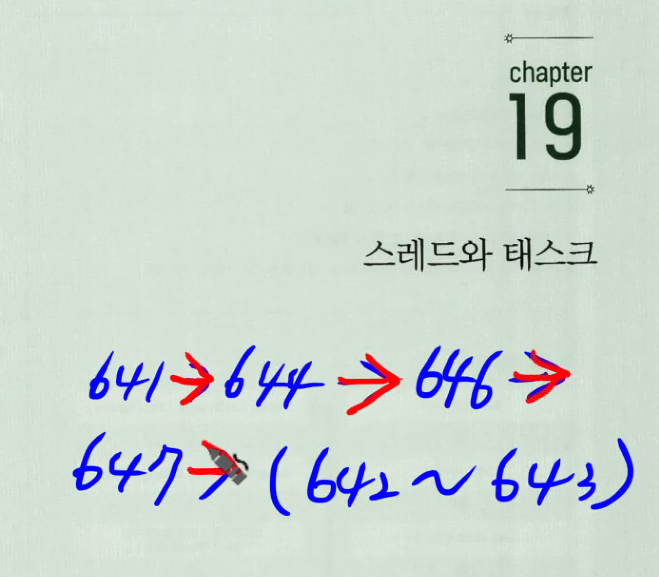 chapter
19
스레드와 태스크
641→644→646→
647→(642~643)